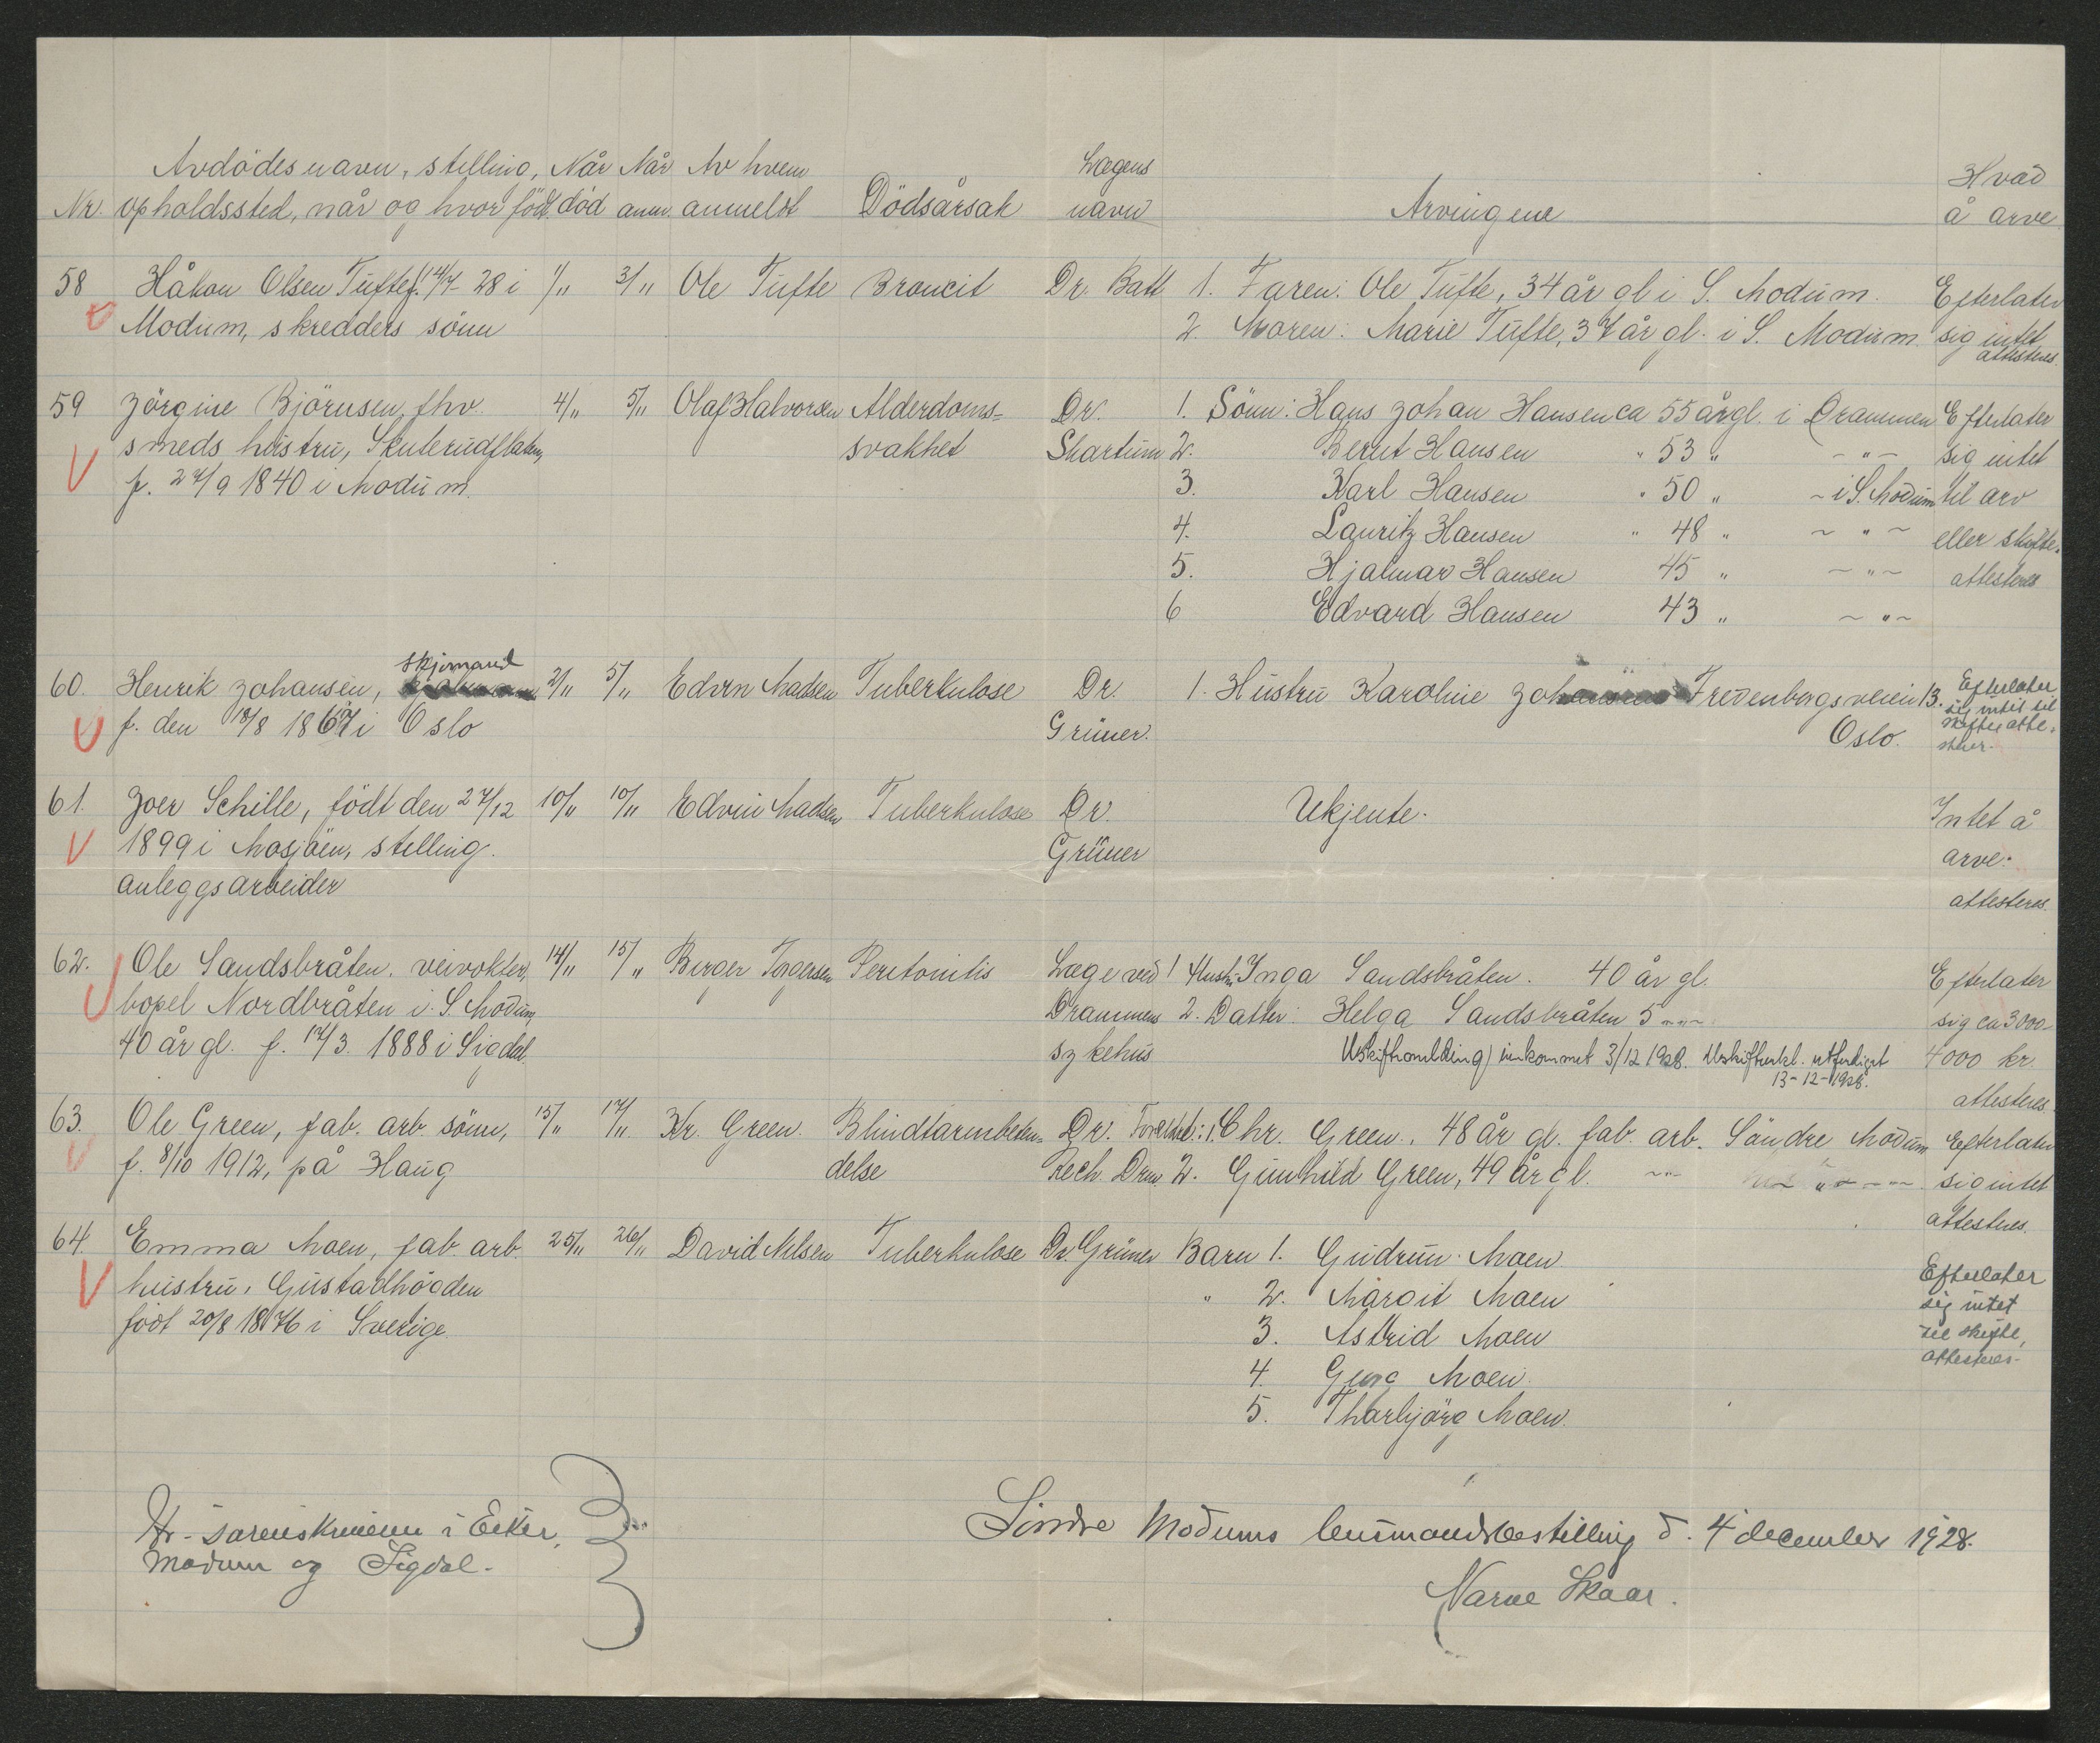 Avdödes navn, stilling, Når Når Av hvem Lægens Hvad
Nr. opholdssted, når og hvor født död anm. anmeldt Dödsårsak navn Arvingene å arve
58 Håkon Olsen Tufte f. 14/7-28 i 1/11 3/11 Ole Tufte Broncit Dr. Batt 1. Faren: Ole Tufte, 34 år gl i S. Modum. Efterlater
Modum, skredders sönn 2. Moren: Marie Tufte, 37 år gl. i S. Modum sig intet
attesteres.
59 Jörgine Björnsen, fhv. 4/11 5/11 Olaf Halvorsen Alderdoms= Dr. 1. Sönn: Hans Johan Hansen ca 55 år gl. i Drammen Efterlater
smeds hustru, Skuterudflaten, svakhet Skartum 2. Bernt Hansen " 53 " - " - sig intet
f. 27/9 1840 i Modum. 3. Karl Hansen " 50 " - i S. Modum til arv
4. Lauritz Hansen " 48 " ~ " ~ eller skifte.
5. Hjalmar Hansen 45 " ~ " ~ attesteres
6 Edvard Hansen 43 " ~ " ~
skjømand
60. Henrik Johansen, 2/11 5/11 Edvin Madsen Tuberkulose Dr. 1. Hustru Karoline Johansen Fredenborgsveien 13. Efterlater
f. den 18/8 1867 i Oslo Grüner. Oslo. sig intet til
skifte, atte-
steres.
61. Joer Schille, födt den 27/12 10/11 10/11 Edvin Madsen Tuberkulose Dr. Ukjente. Intet å
1899 i Mosjöen, stilling. Grüner arve.
anleggsarbeider attesteres.
62. Ole Sandsbråten, veivokter, 14/11 15/11 Birger Torgersen Peritonitis Læge ved 1 Hustr: Inga Sandsbråten. 40 år gl. Efterlater
bopel Nordbråten i S. Modum, Drammens 2. Datter: Helga Sandsbråten 5 - " - sig ca 3000-
40 år gl. f. 17/3. 1888 i Sigdal. sykehus innkommet 3/12 1928. utferdiget 4000 kr.
13-12-1928. attesteres.
63. Ole Green, fab. arb. sönn, 15/11 17/11 Kr. Green. Blindtarmbeten- Dr. Foreldre: 1. Chr. Green. 48 år gl. fab. arb. Söndre Modum Efterlater
f. 8/10 1912, på Haug delse Drm 2. Gunhild Green, 49 år gl. - " - sig intet
attesteres.
64. Emma Moen, fab. arb. 25/11 26/11 David Nilsen Tuberkulose Dr. Grüner Barn 1. Gudrun Moen
hustru, Gustadhögden " 2. Margit Moen Efterlater
födt 20/8 1876 i Sverige. 3. Astrid Moen sig intet
4. Georg Moen. til skifte,
5. Thorbjörg Moen. attesteres.
Hr. sorenskriveren i Eiker, Söndre Modums lensmandsbestilling d. 4 december 1928.
Modum og Sigdal. Narve Skaar.